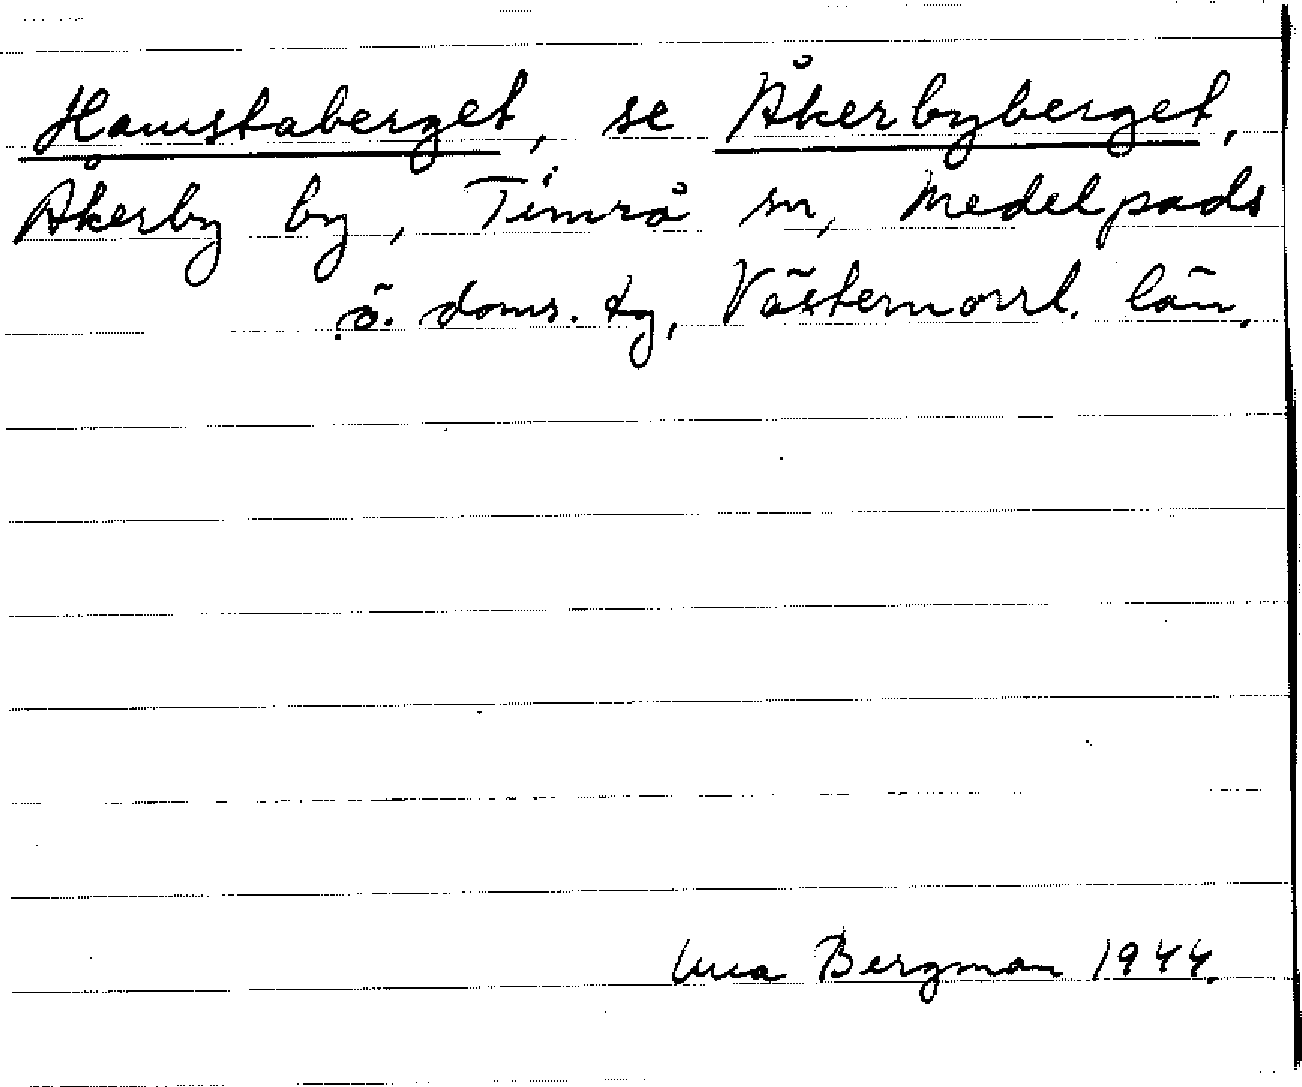 Hamstaberget, se Åkerbyberget,
Åkerby by, Timrå sn, Medelpads
ö. doms. tg, Västernorrl. län.
Una Bergman 1944.